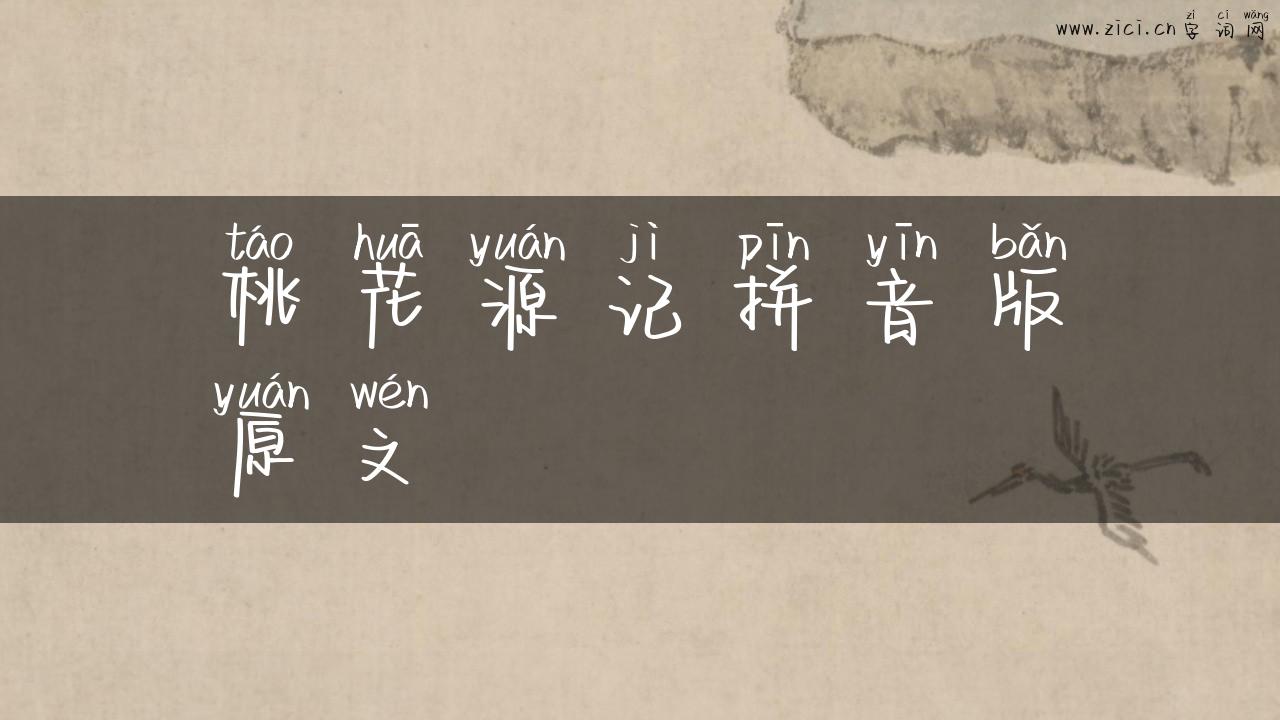 zì cí wǎng
www.zici.cn 字词网
táo huā yuán jì pīn yīn bǎn
桃花源记拼音版
yuán wén
原文